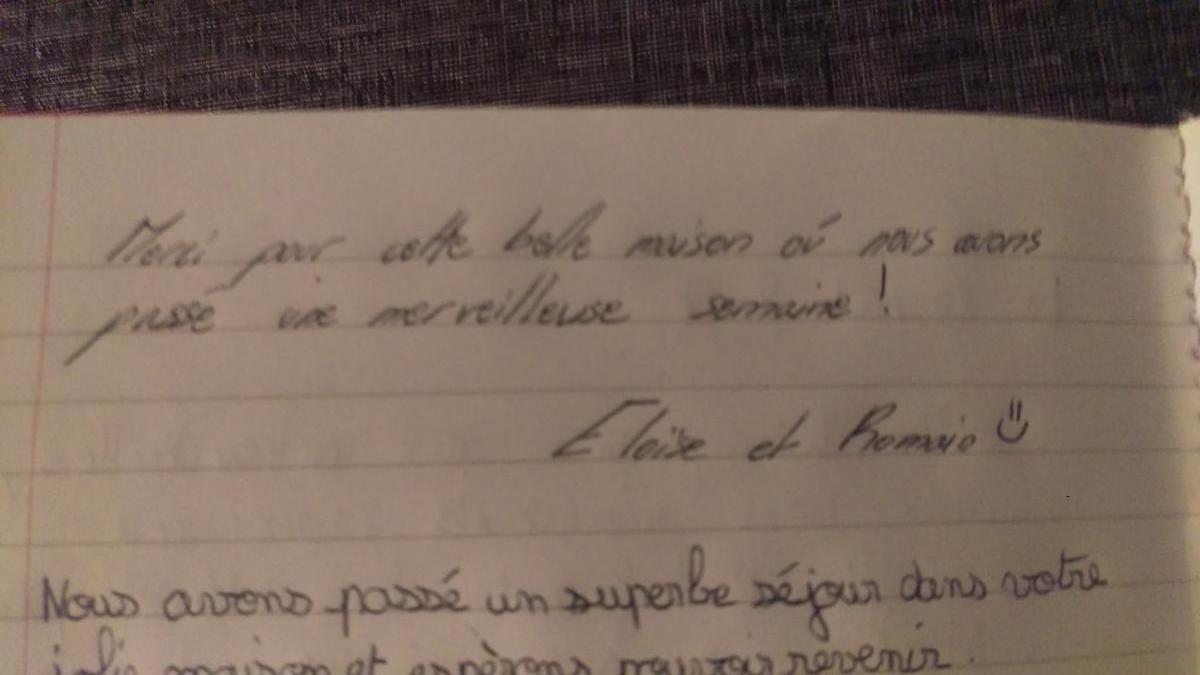 Merci pour cette belle maison où nous avons
passé une merveilleuse semaine !
Eloïse et Romain
Nous avons passé un superbe séjour dans votre
jolie maison et espérons pouvoir revenir.